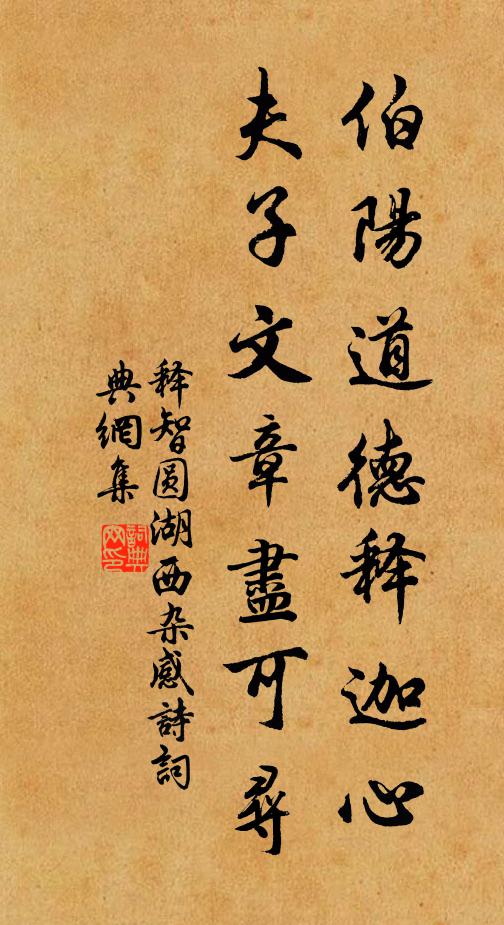 伯陽道德释迦心
夫子文章盡可尋
释智圆湖西杂感詩詞
典網集
詞典
网印